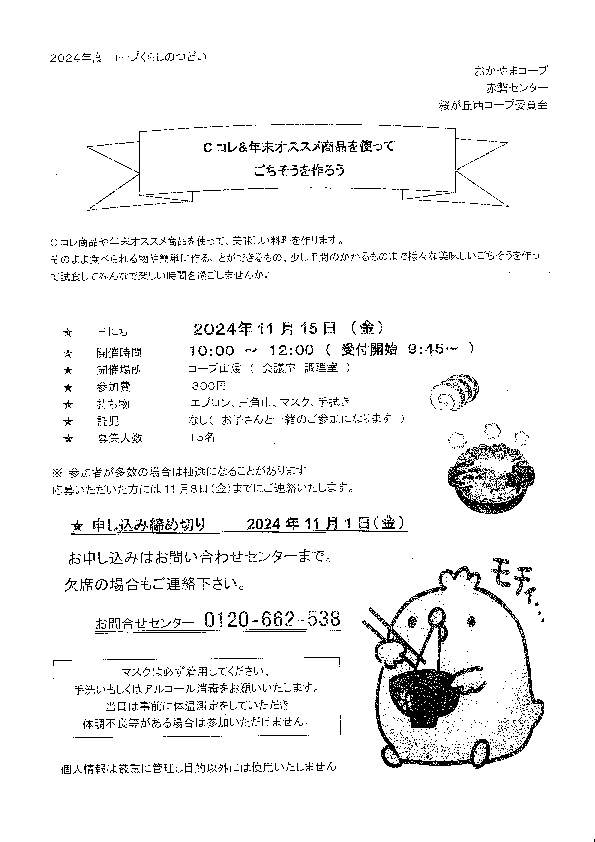 2024年度 コープくらしのつどい
おかやまコープ
赤磐センター
桜が丘西コープ委員会
Cコレ&年末オススメ商品を使って
ごちそうを作ろう
Cコレ商品や年末オススメ商品を使って、美味しい料理を作ります。
そのまま食べられる物や簡単に作ることができるもの、少し手間のかかるものまで様々な美味しいごちそうを作っ
て試食してみんなで楽しい時間を過ごしませんか。
★ 日にち 2024年11月15日(金)
★ 開催時間 10:00 ~ 12:00 ( 受付開始 9:45~ )
★ 開催場所 コープ山陽 ( 会議室 調理室 )
★ 参加費 300円
★ 持ち物 エプロン、三角巾、マスク、手拭き
★ 託児 なし( お子さんと一緒のご参加になります )
★ 募集人数 15名
※ 参加者が多数の場合は抽選になることがあります
応募いただいた方には11月8日(金)までにご連絡いたします。
★ 申し込み締め切り 2024年11月1日(金)
お申し込みはお問い合わせセンターまで。
欠席の場合もご連絡下さい。
お問合せセンター 0120-662-538
モチィ...
マスクは必ず着用してください。
手洗いもしくはアルコール消毒をお願いいたします。
当日は事前に体温測定をしていただき
体調不良等がある場合は参加いただけません。
個人情報は厳密に管理し目的以外には使用いたしません